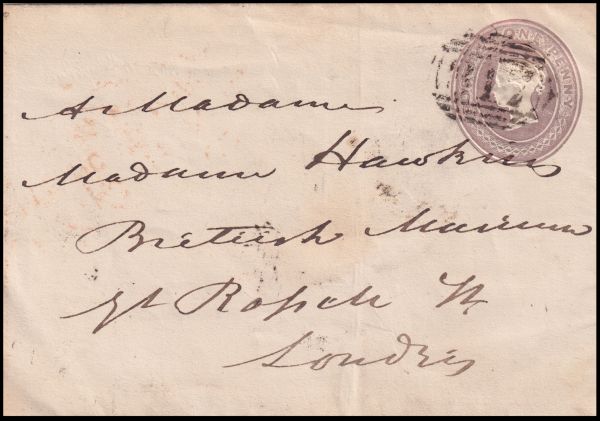 ONE PENNY
12
A Madame
Madame Hawkins
British Museum
Gt Rossell St
Londres